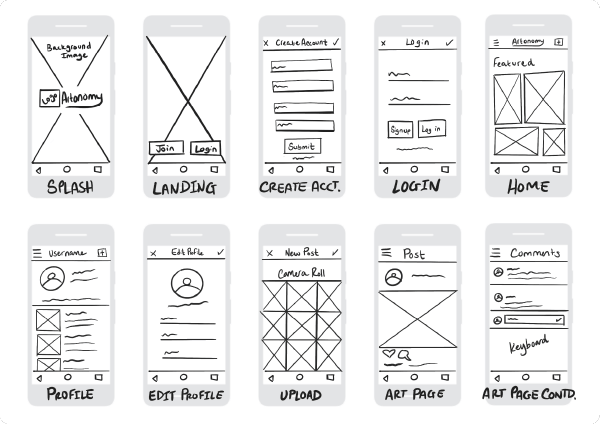 Background
Image
Artonomy
SPLASH
Join
Login
LANDING
x Create Account ✓
Submit
CREATE ACCT.
x Login ✓
Signup
Log in
LOGIN
Artonomy
Featured
HOME
Username
PROFILE
x Edit Profile ✓
EDIT PROFILE
x New Post ✓
Camera Roll
UPLOAD
Post
ART PAGE
Comments
Keyboard
ART PAGE CONTD.